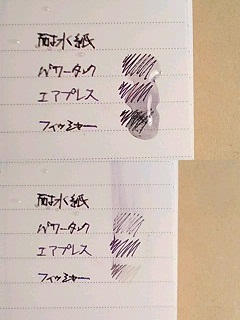 耐水紙
パワータンク
エアプレス
フィッシャー
耐水紙
パワータンク
エアプレス
フィッシャー